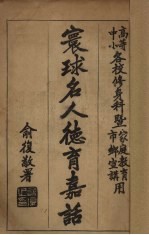 高等
中小
各校修身科暨
家庭教育
市鄉宣講
用
寰球名人德育嘉話
俞復敬署